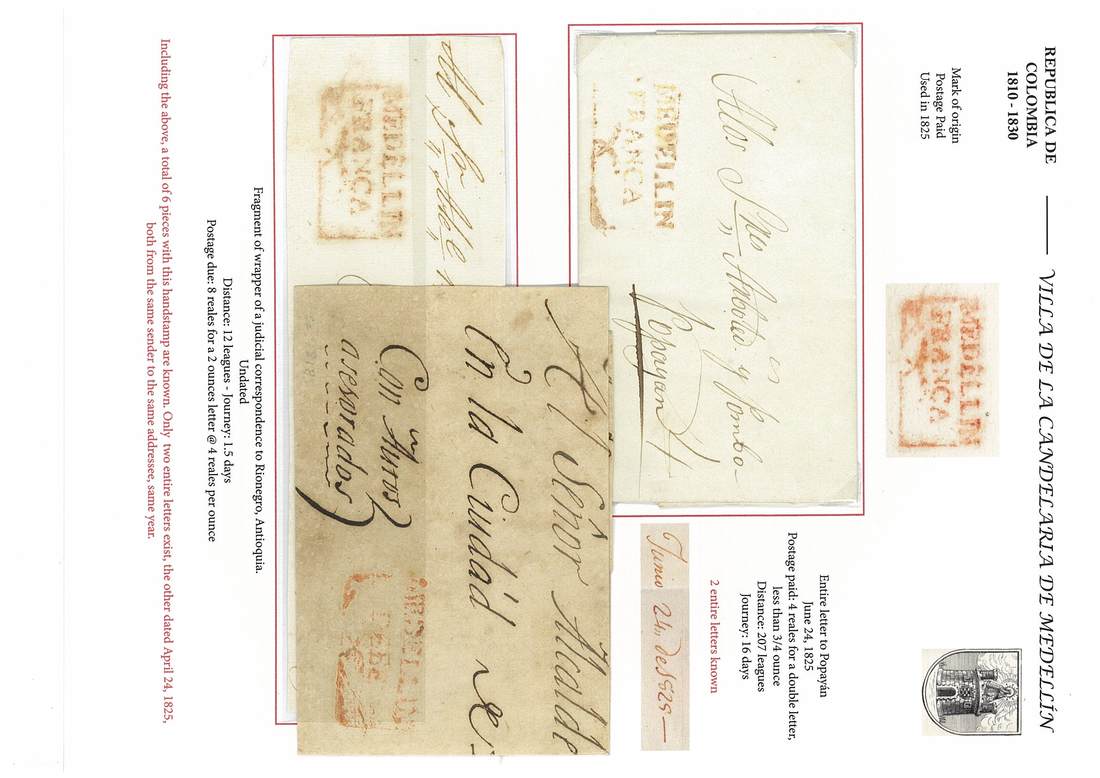 REPUBLICA DE
COLOMBIA
1810 - 1830
VILLA DE LA CANDELARIA DE MEDELLÍN
Mark of origin
Postage Paid
Used in 1825
MEDELLIN
FRANCA
Alos S.res Arboleda y Pombo
Popayan
MEDELLIN
FRANCA
Entire letter to Popayán
June 24, 1825
Postage paid: 4 reales for a double letter,
less than 3/4 ounce
Distance: 207 leagues
Journey: 16 days
2 entire letters known
Junio 24,, de 1825 —
Al Sr
MEDELLIN
FRANCA
Al Señor Alcalde
En la Ciudad de
Con Autos
asesorados
MEDELLIN
Debe
Fragment of wrapper of a judicial correspondence to Rionegro, Antioquia.
Undated
Distance: 12 leagues - Journey: 1.5 days
Postage due: 8 reales for a 2 ounces letter @ 4 reales per ounce
Including the above, a total of 6 pieces with this handstamp are known. Only two entire letters exist, the other dated April 24, 1825,
both from the same sender to the same addressee, same year.